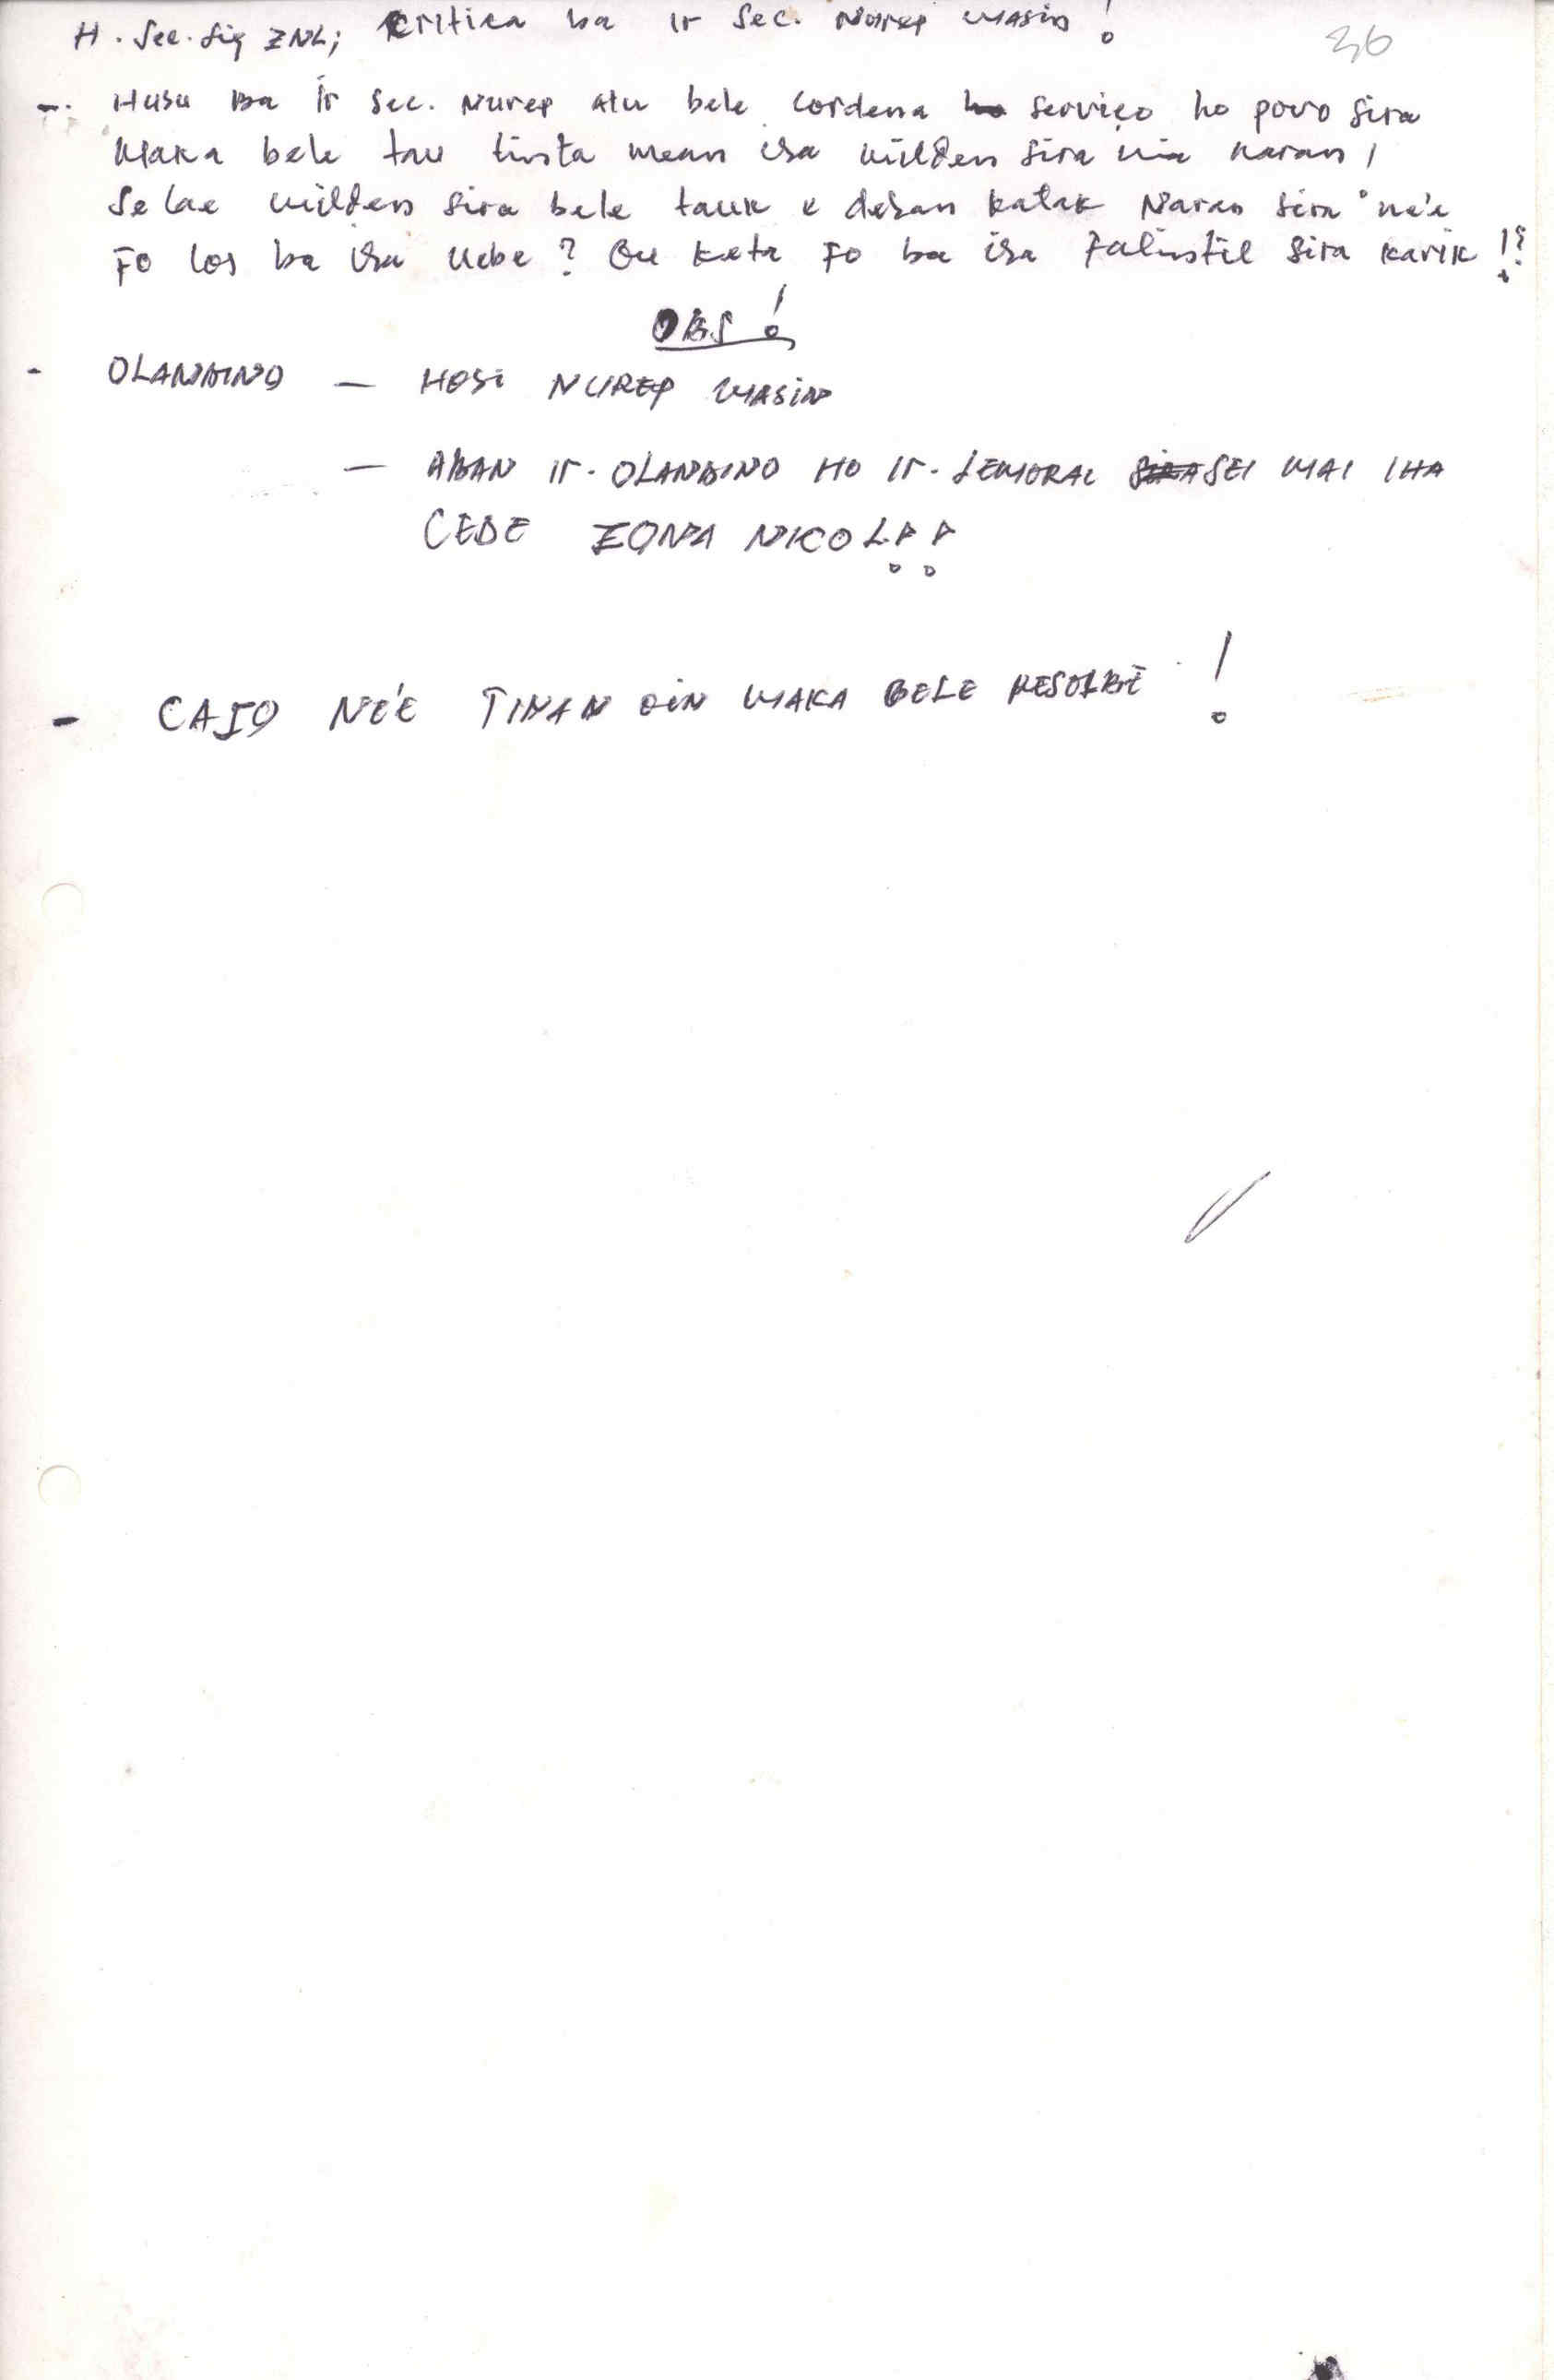 H. Sec. Sig ZNL; Critica ba ir Sec. Nurep Masin!
36
-. Husu Ba ir Sec. Nurep atu bele cordena ho serviço ho povo sira
Maka bele tau tinta mean iha sira nia naran,
Se lae sira bele tauk e dehan katak Naran sira ne'e
Fo los ba iha nebe? Ou keta Fo ba iha Falintil sira karik!?
OBS!
- OLANDINO — HOSI NUREP MASIN
— ABAN ir. OLANDINO HO ir. LEMORAL SIRA SEI MAI IHA
CEDE ZONA NICOL!!
- CAJO NE'E TINAN OIN MAKA BELE RESOLBE!